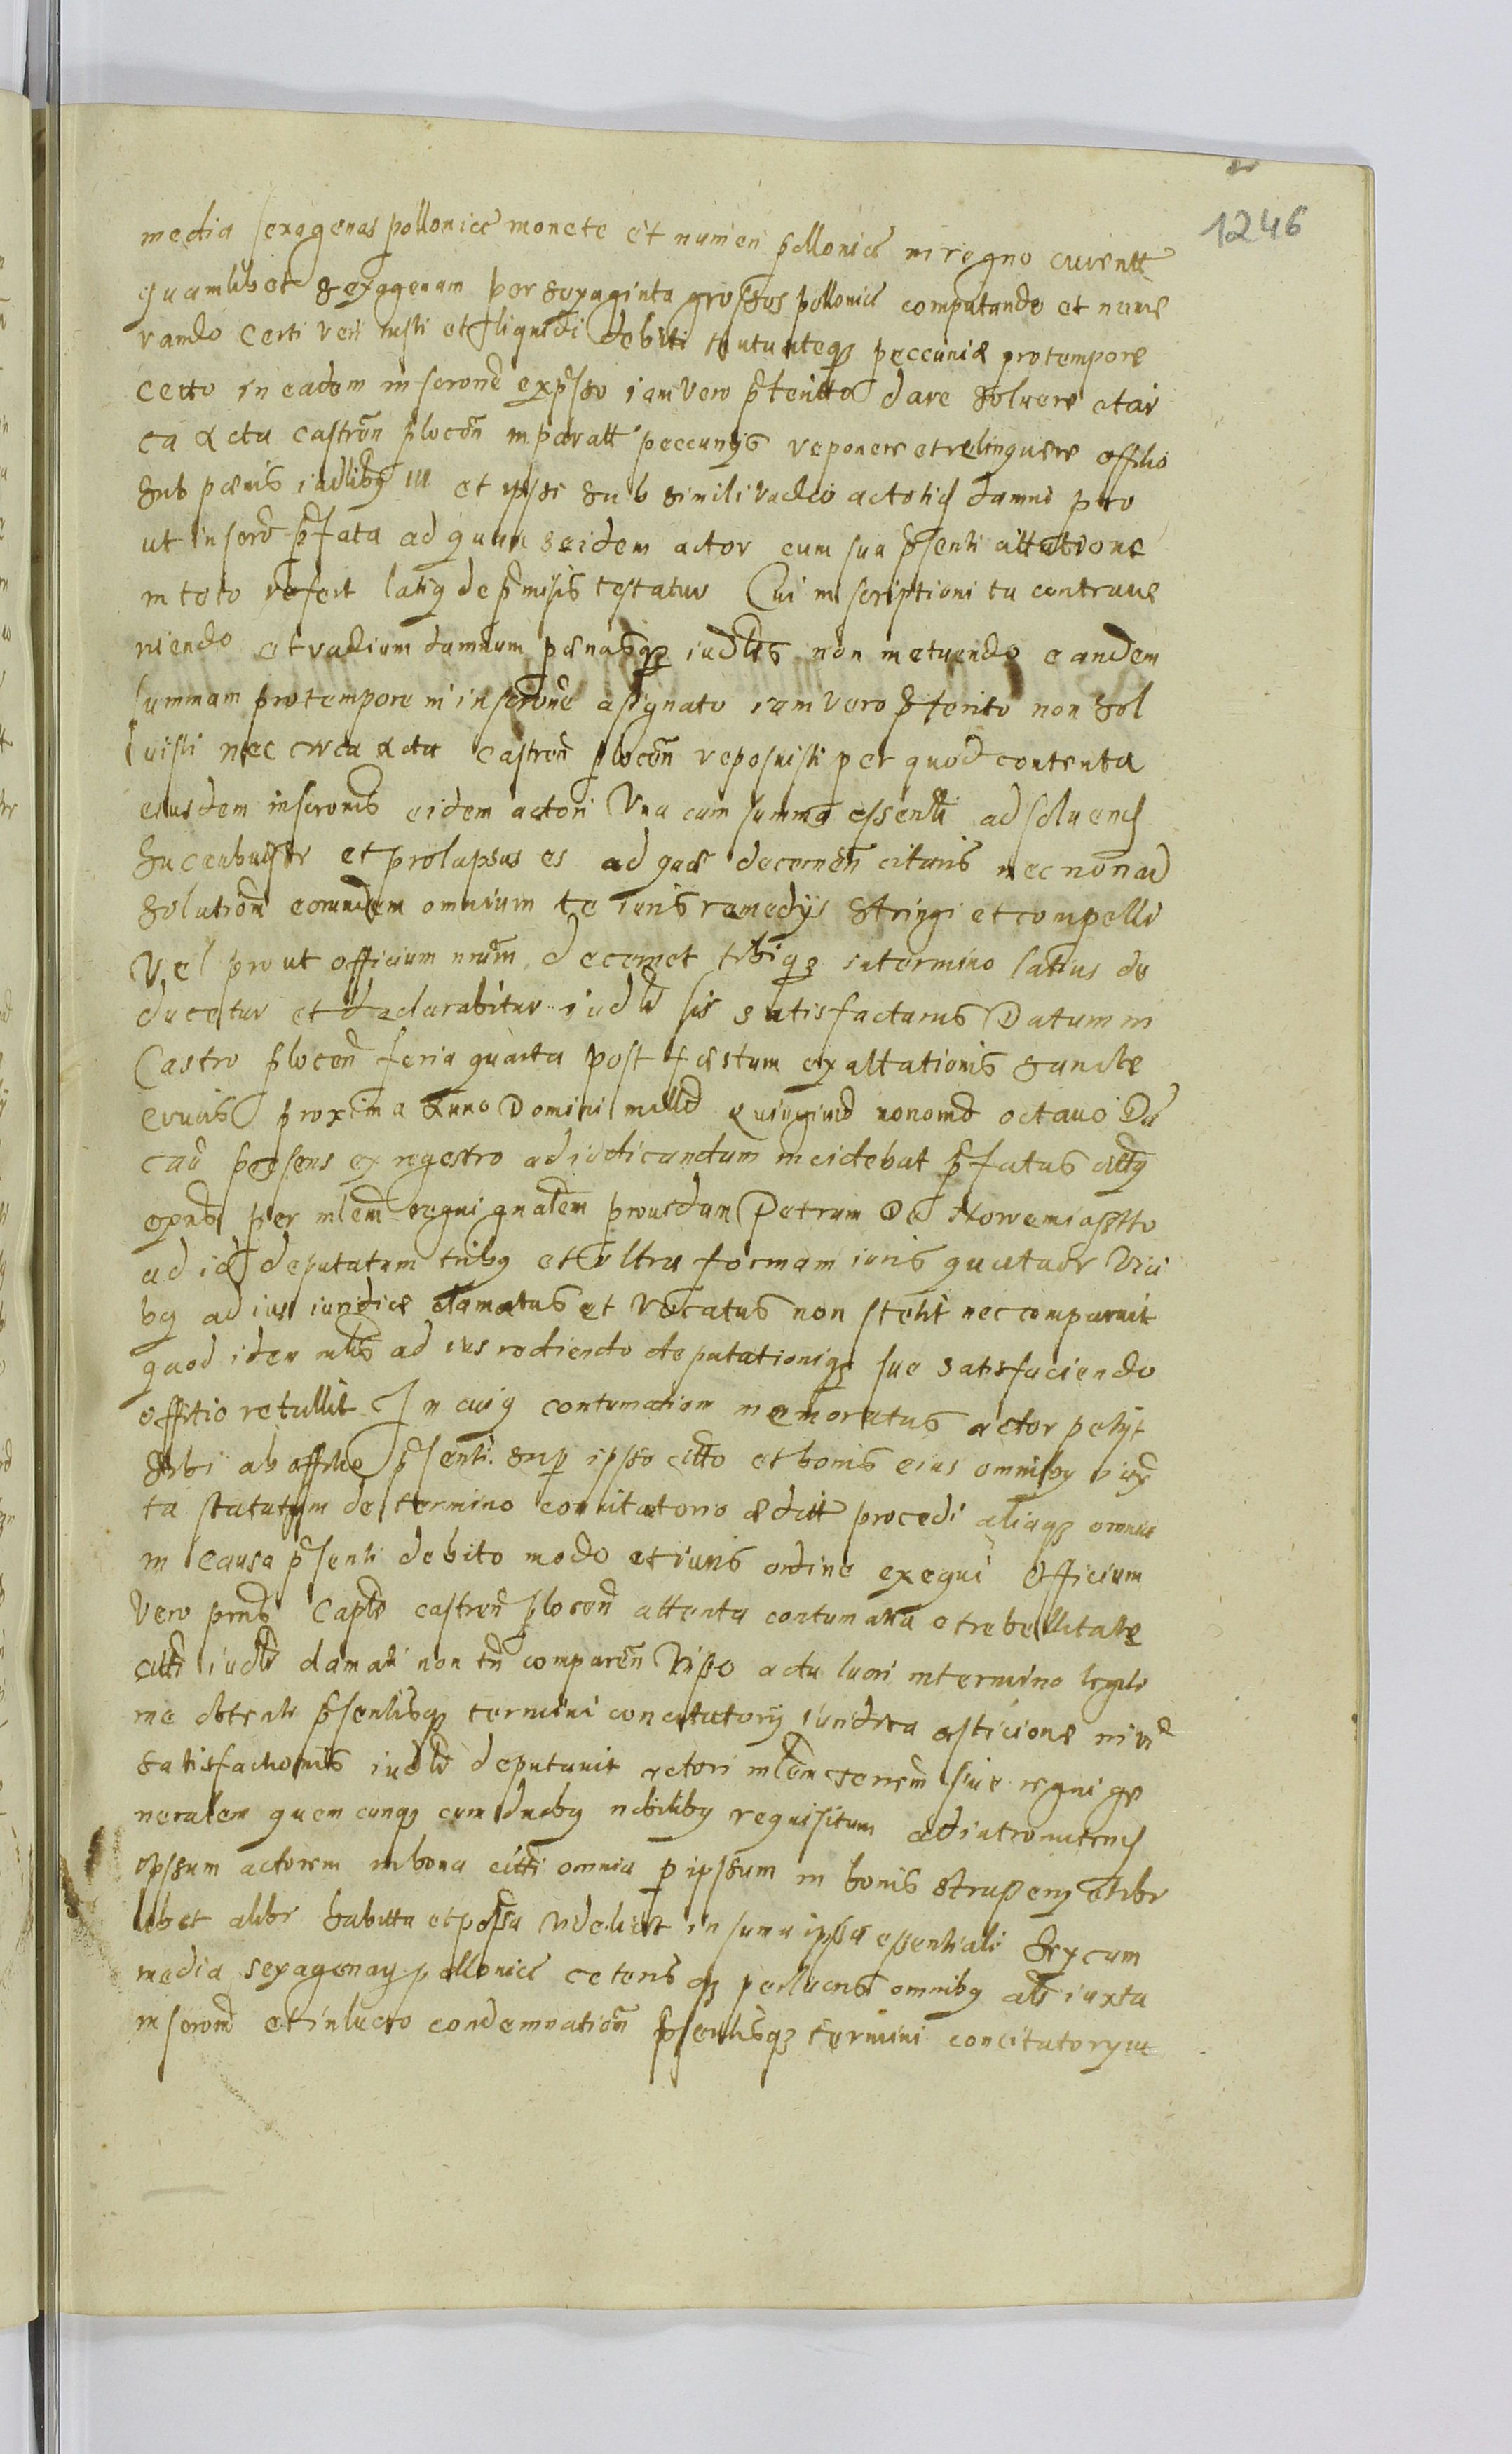 1246
media sexagenas pollonice monete et numeri pollonici in regno currentt
quamlibet sexagenam per sexaginta grossos pollonicl computando et nume
rando certi veri iusti et liquidi debiti mutuateq3 peccuniæ pro tempore
certo in eadem inscrone exp̃sso iam vero p̃teritto dare soluere et cir
ca acta castren̄ plocen̄ in paratt peccunijs reponere et relinquere offitio
sub pænis iudlibq III et ipsi sub simili vadio actoticq damni pro
ut inscrõ p̃fata ad quam se idem actor cum sua p̃senti cittatione
in toto refert latiq de p̃misis testatur Cui inscriptioni tu contraue
niendo et vadium damnum pænasq3 iudles non metuendo eandem
summam pro tempore in inscrone asignato iam vero p̃terito non sol
uisti nec circa acta castren̄ plocen̄ reposuisti per quod contenta
eiusdem inscronis eidem actori Vna cum summa essentli ad soluend
sucubuisse et prolapsus es ad quæ decernen̄ citaris nec non ad
solution̄ eorundem omnium te iuris remedijs stringi et compelli
Vel prout officium nrum decernet tibiq3 in termino latius de
ducetur et declarabitur iudle sis satisfacturus Datum in
Castro plocen̄ feria quarta post festum exaltationis sancte
crucis proxima Anno Domini milld quingind nonomd octauo Du
cau presens ex regestro ad iudicandum incidebat p̃fatus citt9
exprs per mlem regni gnalem prouidum Petrum De Nowemiastto
ad id deputatum tribq et vltra formam iuris quatuor vici
bq ad ius iuridice clamatus et vocatus non stetit nec comparuit
quod idem mlis ad ius rediendo deputationiq3 sue satisfaciendo
offitio retullit In cuiq contumatiam memoratus actor petijt
sibi ab offitio p̃senti sup ipso citto et bonis eius omnibq iux
ta statutum de termino concitatorio æditt procedi aliaq3 omnia
in causa p̃senti debito modo et iuris ordine exequi Officium
vero prns Caple castren̄ plocen̄ attenta contumatia et rebellitate
citti iudle clamati non tn̄ comparen̄ In ipso actu lucri in termino legiti
me obtenti p̃sentisq3 termini concitatorij iuridica asticione in vi
satisfactionis iudle deputauit actori mlem terrem siue regni ge
neralem quem cunq3 cum duobq nobilibq requisitum ad intromitend
ipssum actorem in bona citti omnia p ipssum in bonis Strupeny et vbi
libet alibi habitta et possa videlicet in suma ipssa essentiali sex cum
media sexagenaq pollonicl ceterisq3 perlucris omnibq als iuxta
inscrond et in lucro condemnation̄ p̃sentisq3 termini concitatorij in